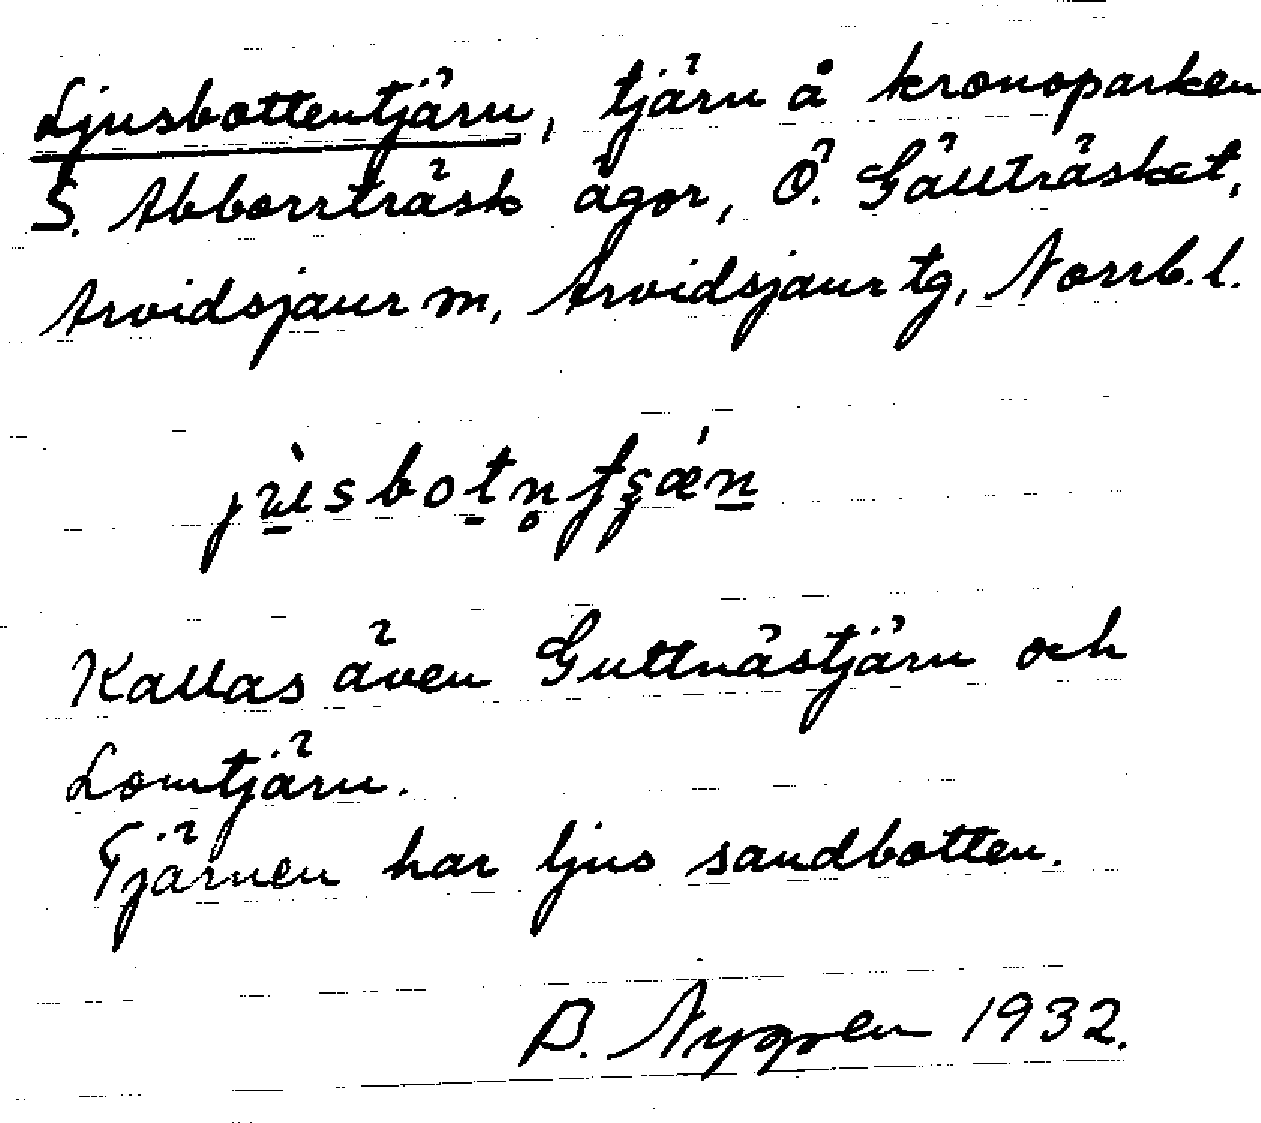 Ljusbottentjärn, tjärn å kronoparken
S. Abborrträsk ägor, Ö. Gällträsket,
Arvidsjaur m, Arvidsjaur tg, Norrb. l.
Kallas även Guttnästjärn och
Lomtjärn.
Tjärnen har ljus sandbotten.
B. Nygren 1932.